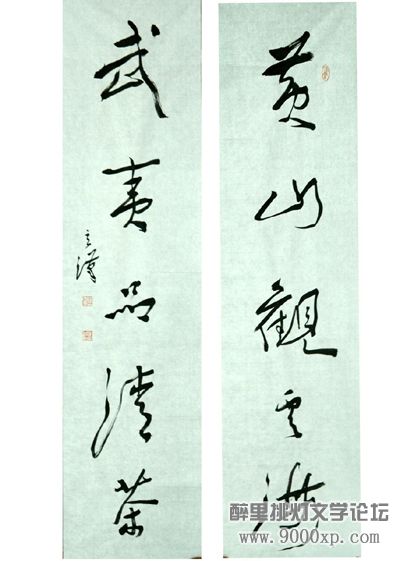 黄山觀云海
武夷品清茶
醉里挑灯文学论坛
www.9000xp.com